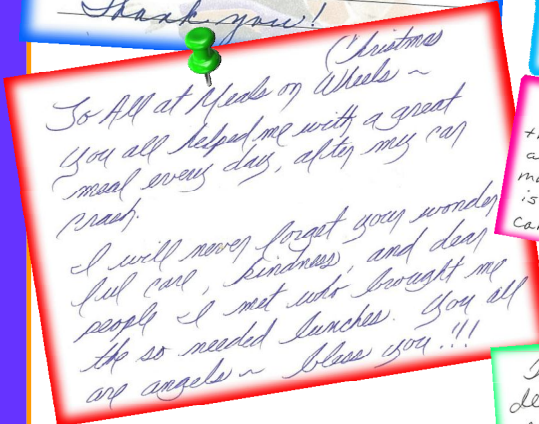 Thank you!
Christmas
To All at Meals on Wheels ~
you all helped me with a great
meal every day, after my car
crash.
I will never forget your wonder
ful care, kindness, and dear
people I met who brought me
the so needed lunches. You all
are angels ~ bless you!!!
is